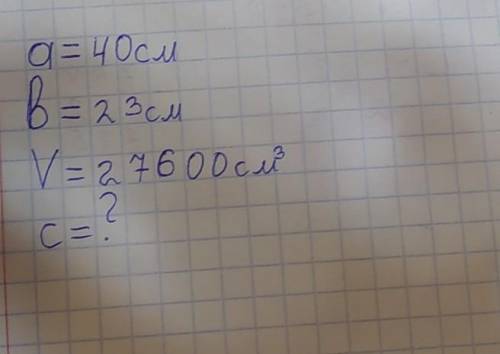 a = 40 см
в = 23 см
V = 27600 см³
c = ?